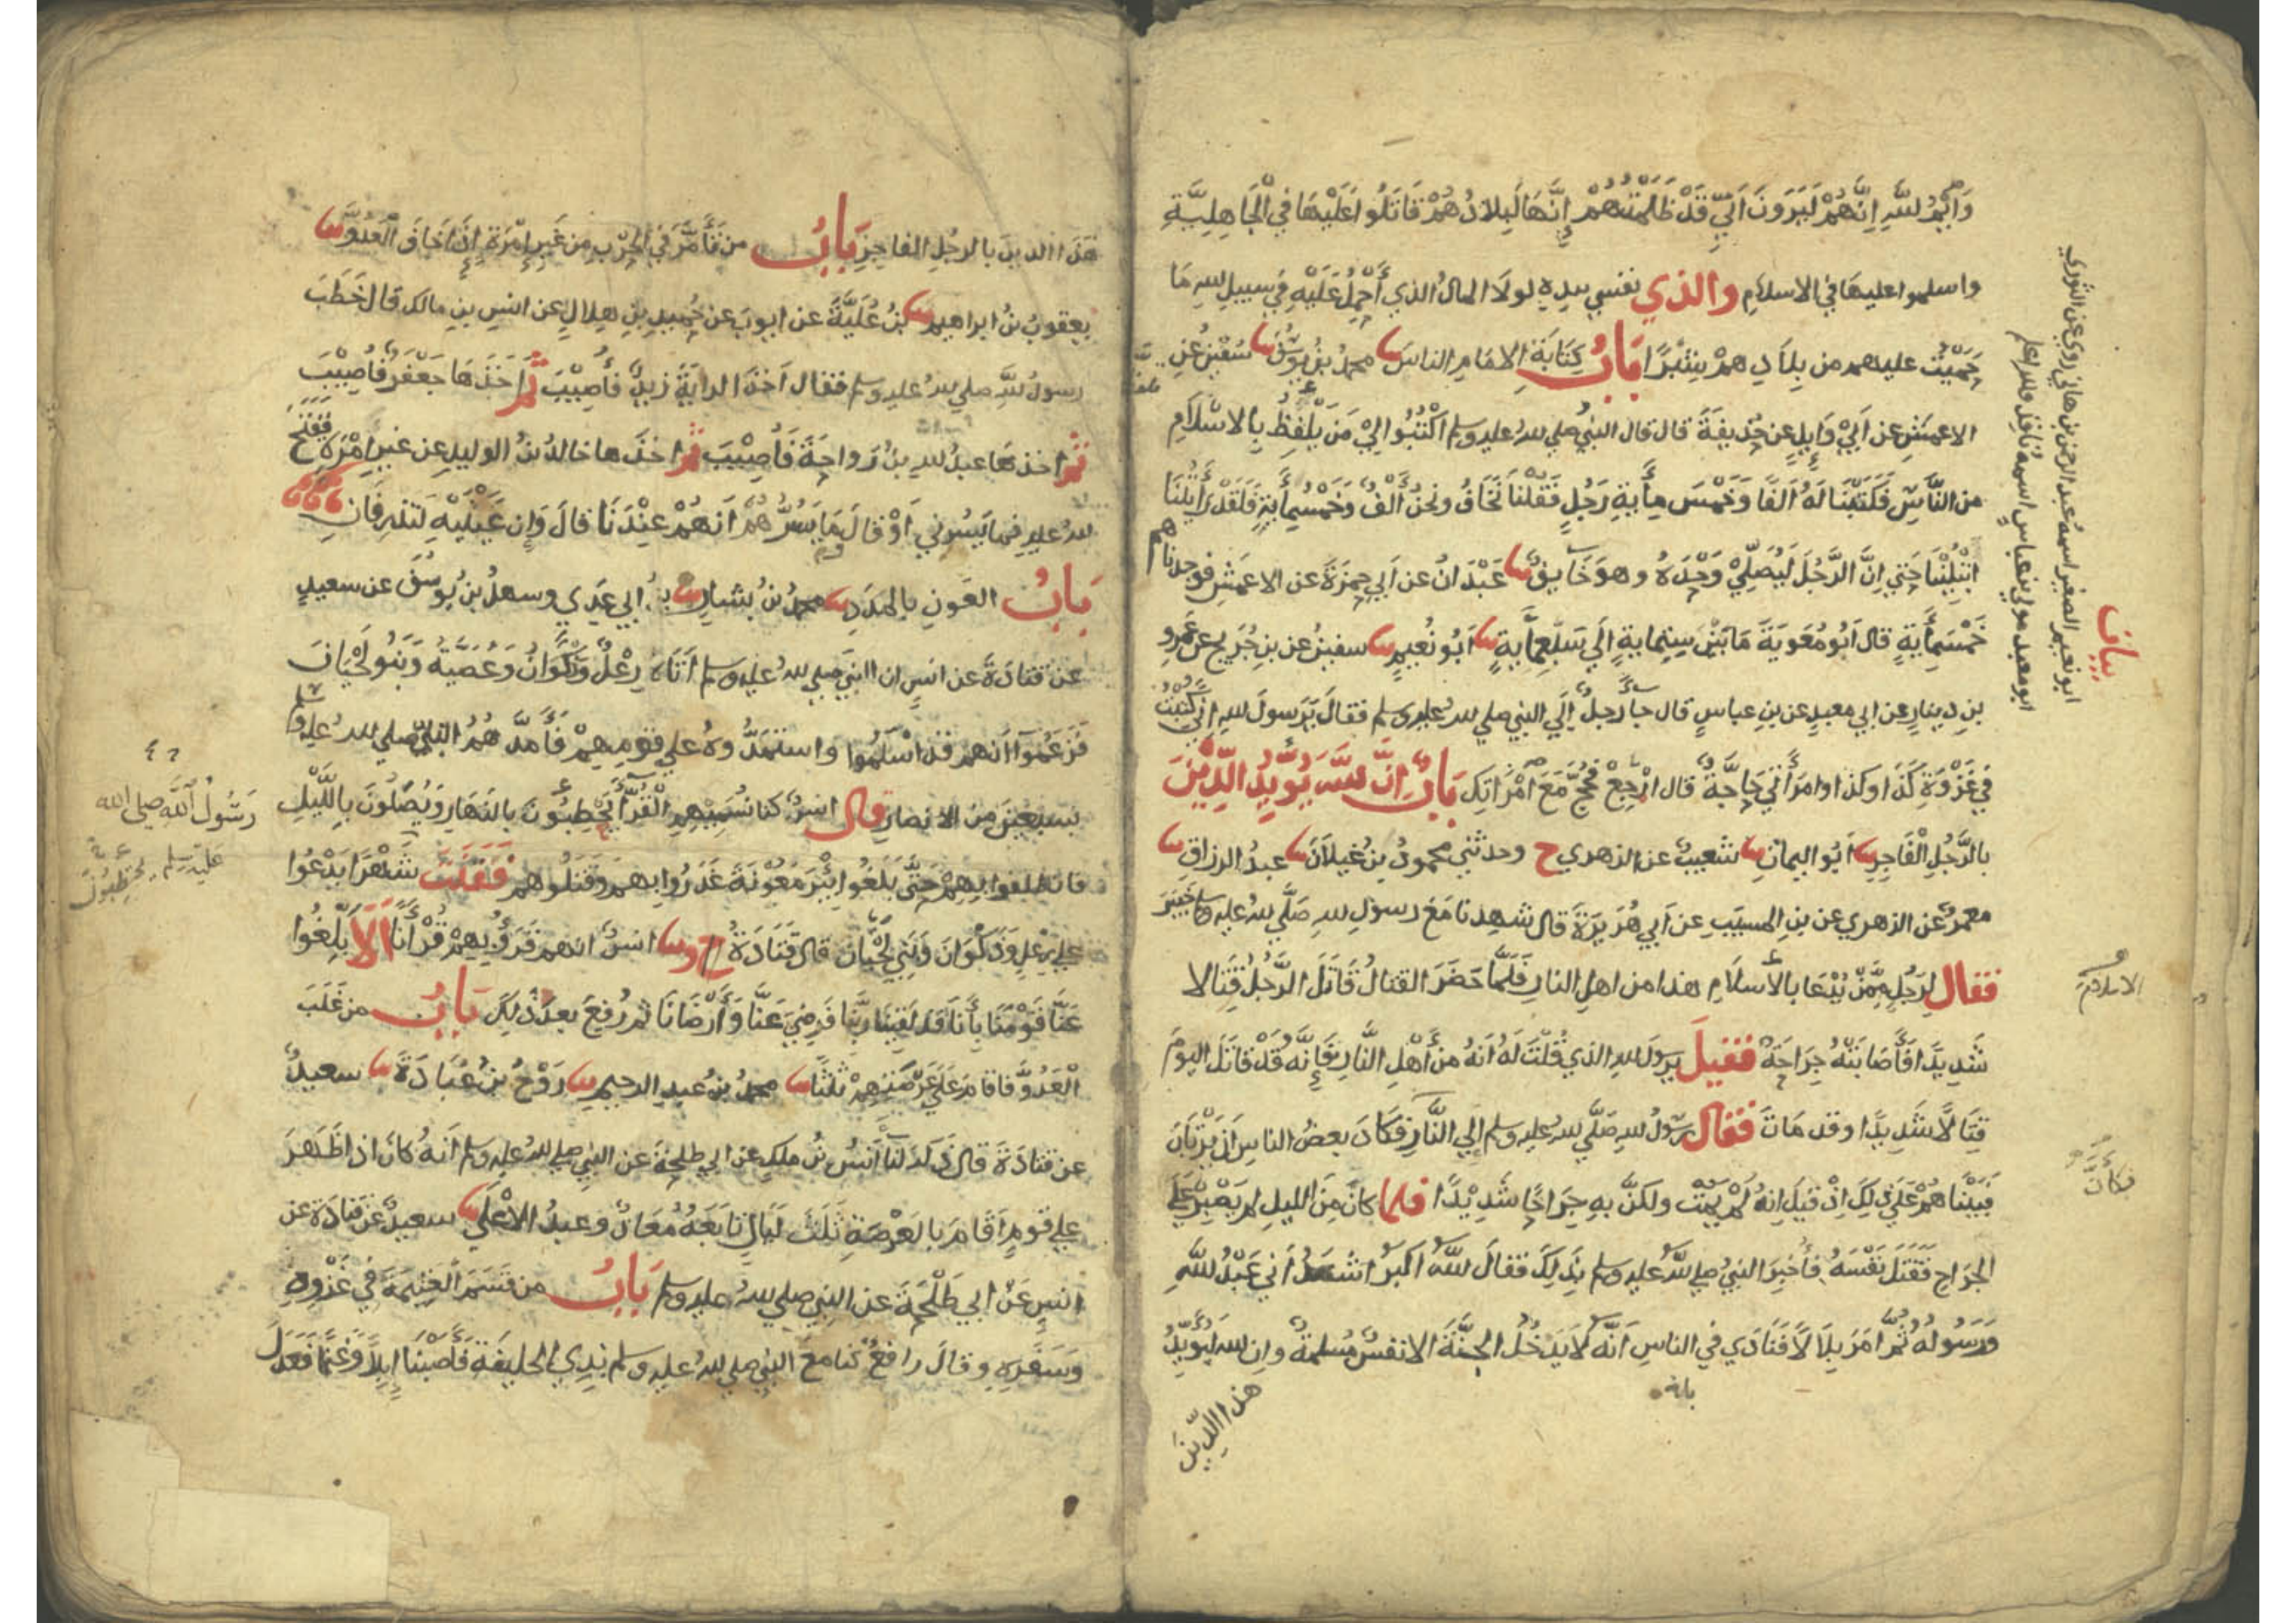 وَايْمُ اللّٰهِ اِنَّهُمْ لَيَرَوْنَ اَنِّي قَدْ ظَلَمْتُهُمْ إِنَّهَا لَبِلَادُهُمْ قَاتَلُوا عَلَيْهَا فِي الْجَاهِلِيَّةِ
واسلموا عليها في الاسلامِ والذي نفسي بيدِهِ لولا المالُ الذي أَحْمِلُ عَلَيْهِ فِي سبيلِ اللهِ مَا
حَمَيْتُ عليهم من بِلَادِهِمْ شِبْرًا بَابُ كِتَابَةِ الامَامِ الناسَ محمدُ بْنُ يُوسُفَ سُفْيٰنُ عَنِ
الاعمشِ عن اَبِي وَايِلٍ عن حُذيفَةَ قال قال النبيُّ صلي الله عليه وسلم اكْتُبُوا لِيْ مَنْ يَلْفِظُ بِالاسْلَامِ
من النَّاسِ فَكَتَبْنَا لَهُ اَلْفًا وَخَمْسَ مِأَيةِ رَجُلٍ فَقُلْنَا نَخَافُ ونحنُ أَلْفٌ وَخَمْسُمِأَيةٍ فَلَقَدْ رَأَيْتُنَا
ابْتُلِيْنَا حَتي اِنَّ الرَّجُلَ لَيُصَلِّيْ وَحْدَهُ وهوَ خَايِفٌ عَبْدَانُ عن اَبي حمزَةَ عن الاعمَشِ فوجدناهم
خَمْسَمِأَيةٍ قال اَبُو مُعٰوِيَةَ مَا بَيْنَ سِتِمايةٍ اِلَي سَبْعِمِأَيةٍ اَبُو نُعَيْمٍ سفينُ عن بن جُرَيجٍ عن عَمْرِو
بنِ دينارٍ عن ابي معبدٍ عن بنِ عباسٍ قال جا رجلٌ اِلَي النبي صلي الله عليه وسلم فقالَ يَرَسولَ اللهِ اِنِّي كُتِبْتُ
فِي غَزْوَةِ كَذَا وكذا وامرَأَتِي حَاجَّةٌ قال ارْجِعْ فَحُجَّ مَعَ امْرَاَتِكَ بَابُ اِنَّ اللّٰهَ يُؤَيِّدُ الدِّيْنَ
بالرَّجُلِ الْفَاجِرِ اَبُو اليمانِ شعيبٌ عن الزهري ح وحدثني محمودُ بنُ غَيلَانَ عبدُ الرزاقِ
معمرٌ عن الزهري عن بنِ المسيبِ عن اَبي هُرَيرَةَ قال شهِدنا مَعَ رسولِ اللهِ صَلَّي الله عليه وسلم خَيْبَرَ
فقال لِرَجُلٍ مِمَّنْ يُدْعَا بالأسلَامِ هذا من اهلِ النارِ فَلَمَّا حَضَرَ القتالُ قَاتَلَ الرَّجُلُ قِتَالا
شَدِيدًا فَأَصَابَتْهُ جِرَاحَةٌ فقيلَ يرسولَ اللهِ الذي قُلْتَ لَهُ اَنهُ من أَهْلِ النَّارِ فَإِنَّهُ قَدْ قاتَلَ اليومَ
قِتَالًا شَدِيدًا وقد مَاتَ فَقالَ رَسُولُ اللهِ صَلَّي الله عليه وسلم اِلي النَّارِ فَكَادَ بعضُ الناسِ اَنْ يَرْتَابَ
فَبَيْنَا هُمْ عَلَي ذٰلِكَ اِذْ قِيلَ اِنهُ لَمْ يَمُتْ ولكنَّ بِهِ جِرَاحًا شَدِيْدًا فلما كانَ مِنَ الليلِ لم يَصْبِرْ عَلَي
الجِرَاحِ فَقَتَلَ نَفْسَهُ فأُخبِرَ النبيُّ صلي الله عليه وسلم بذَلِكَ فقالَ اللهُ اكبرُ اشهَدُ أَني عَبْدُ اللّٰهِ
وَرَسُولُهُ ثُمَّ امَرَ بِلَالًا فَنَادَي في الناسِ اَنَّهُ لَا يَدْخُلُ الجنَّةَ الا نفسٌ مُسلمةٌ وان اللهَ لَيُؤَيِّدُ
هذا الدِّينَ
بيان
ابو نعيم الصغير اسمه عبد الرحمن بن هاني روي عن الثوري
ابو معبد مولي بن عباس اسمه نافذ والله اعلم
الاسلام
فكأنَّ
هَذا الدينَ بالرجُلِ الفاجِرِ بَابُ من تَأَمَّرَ في الحرْبِ مِن غَيرِ إمْرَةٍ إذَا خَافَ الْعَدُوَّ
يعقوبُ بنُ ابراهيمَ بنُ عُلَيَّةَ عن ايوبَ عن حُميدِ بنِ هِلالٍ عن انسِ بنِ مالك قال خَطَبَ
رسولُ اللّٰهِ صلي الله عليه وسلم فقال اَخذ الرايةَ زيدٌ فأُصِيْبَ ثُمَّ اَخَذَهَا جَعْفَرٌ فَأُصِيْبَ
ثم اخذَهَا عبدُ اللهِ بنُ رَواحةَ فَأُصِيْبَ ثُمَّ اخذَها خالدُ بنُ الوليدِ عن غيرِ امْرَةٍ فَفُتِحَ
اللهُ عليهِ فما يَسُرني اَوْ قَالَ مَا يَسُرُّهُمْ اَنهُمْ عِنْدَنَا قالَ وَاِن عَيْنَيْهِ لَتذرِفَانِ
بَابُ العَونِ بالمَدَدِ محمدُ بنُ بشارٍ بنُ ابي عَدِيٍ وسهلُ بنُ يُوسُفَ عن سعيدٍ
عن قتادَةَ عن انسٍ ان النبيَ صلي الله عليه وسلم اَتَاهُ رِعْلٌ وَذَكْوَانُ وَعُصَيَّةُ وَبَنُو لَحْيَانَ
فَزَعَمُوا اَنهم قَدْ اَسْلَمُوا واستَمَدُّوهُ علي قومِهِمْ فَأَمَدَّهُمُ النبيُّ صلي الله عليه وسلم
بسبعِينَ مِنَ الانصارِ قال انسٌ كنا نُسَمِّيْهِمِ الْقُرَّأَ يَحْطِبُونَ بالنهَارِ وَيُصَلُّونَ بِاللَّيْلِ
فانطلقوا بِهِمْ حَتَّي بَلَغُوا بِئْرَ مَعُوْنَةَ غَدَرُوا بهم وَقَتَلُوهم فَقَنَتَ شَهْرًا يَدْعُوا
علي رِعْلٍ وَذَكْوَانَ وَبَنِي لَحْيَانَ قال قَتَادَةُ وَ انسٌ انهم قَرَؤُا بِهِمْ قُرْأَنًا اَلَا بَلِّغُوا
عَنَّا قَوْمَنَا بأَنَا قَد لَقِيْنَا رَبَّنَا فَرَضِيَ عَنَّا وَأَرْضَانَا ثم رُفِعَ بعدَ ذٰلِكَ بَابُ من غَلَبَ
الْعَدُوَّ فاقامَ عَلَي عَرْصَتِهِمْ ثَلٰثًا محمدُ بنُ عبدِ الرحيمِ رَوْحُ بنُ عُبَادَةَ سعيدٌ
عن قتادَةَ قال ذَكَرَ لنا أنسُ بنُ ملكٍ عن ابي طلحةَ عن النبي صلي الله عليه وسلم اَنهُ كان اذا ظَهَرَ
علي قومٍ اَقَامَ بالعَرْصَةِ ثَلٰثَ لَيَالٍ تابَعَهُ مُعَاذٌ وعبدُ الاَعْلَي سعيدٌ عن قتادَةَ عن
انسٍ عَنْ ابي طَلْحَةَ عن النبي صلي الله عليه وسلم بَابُ من قَسَمَ الْغنِيمَةَ في غَزْوِهِ
وَسَفَرِهِ وقالَ رافعٌ كنا معَ النبي صلي الله عليه وسلم بذِي الحليفَةِ فَأَصَبْنَا إبِلًا وَغَنَمًا فَعَدَلَ
رَسُولُ اللّٰهِ صلى الله
عليه وسلم يحتطبون